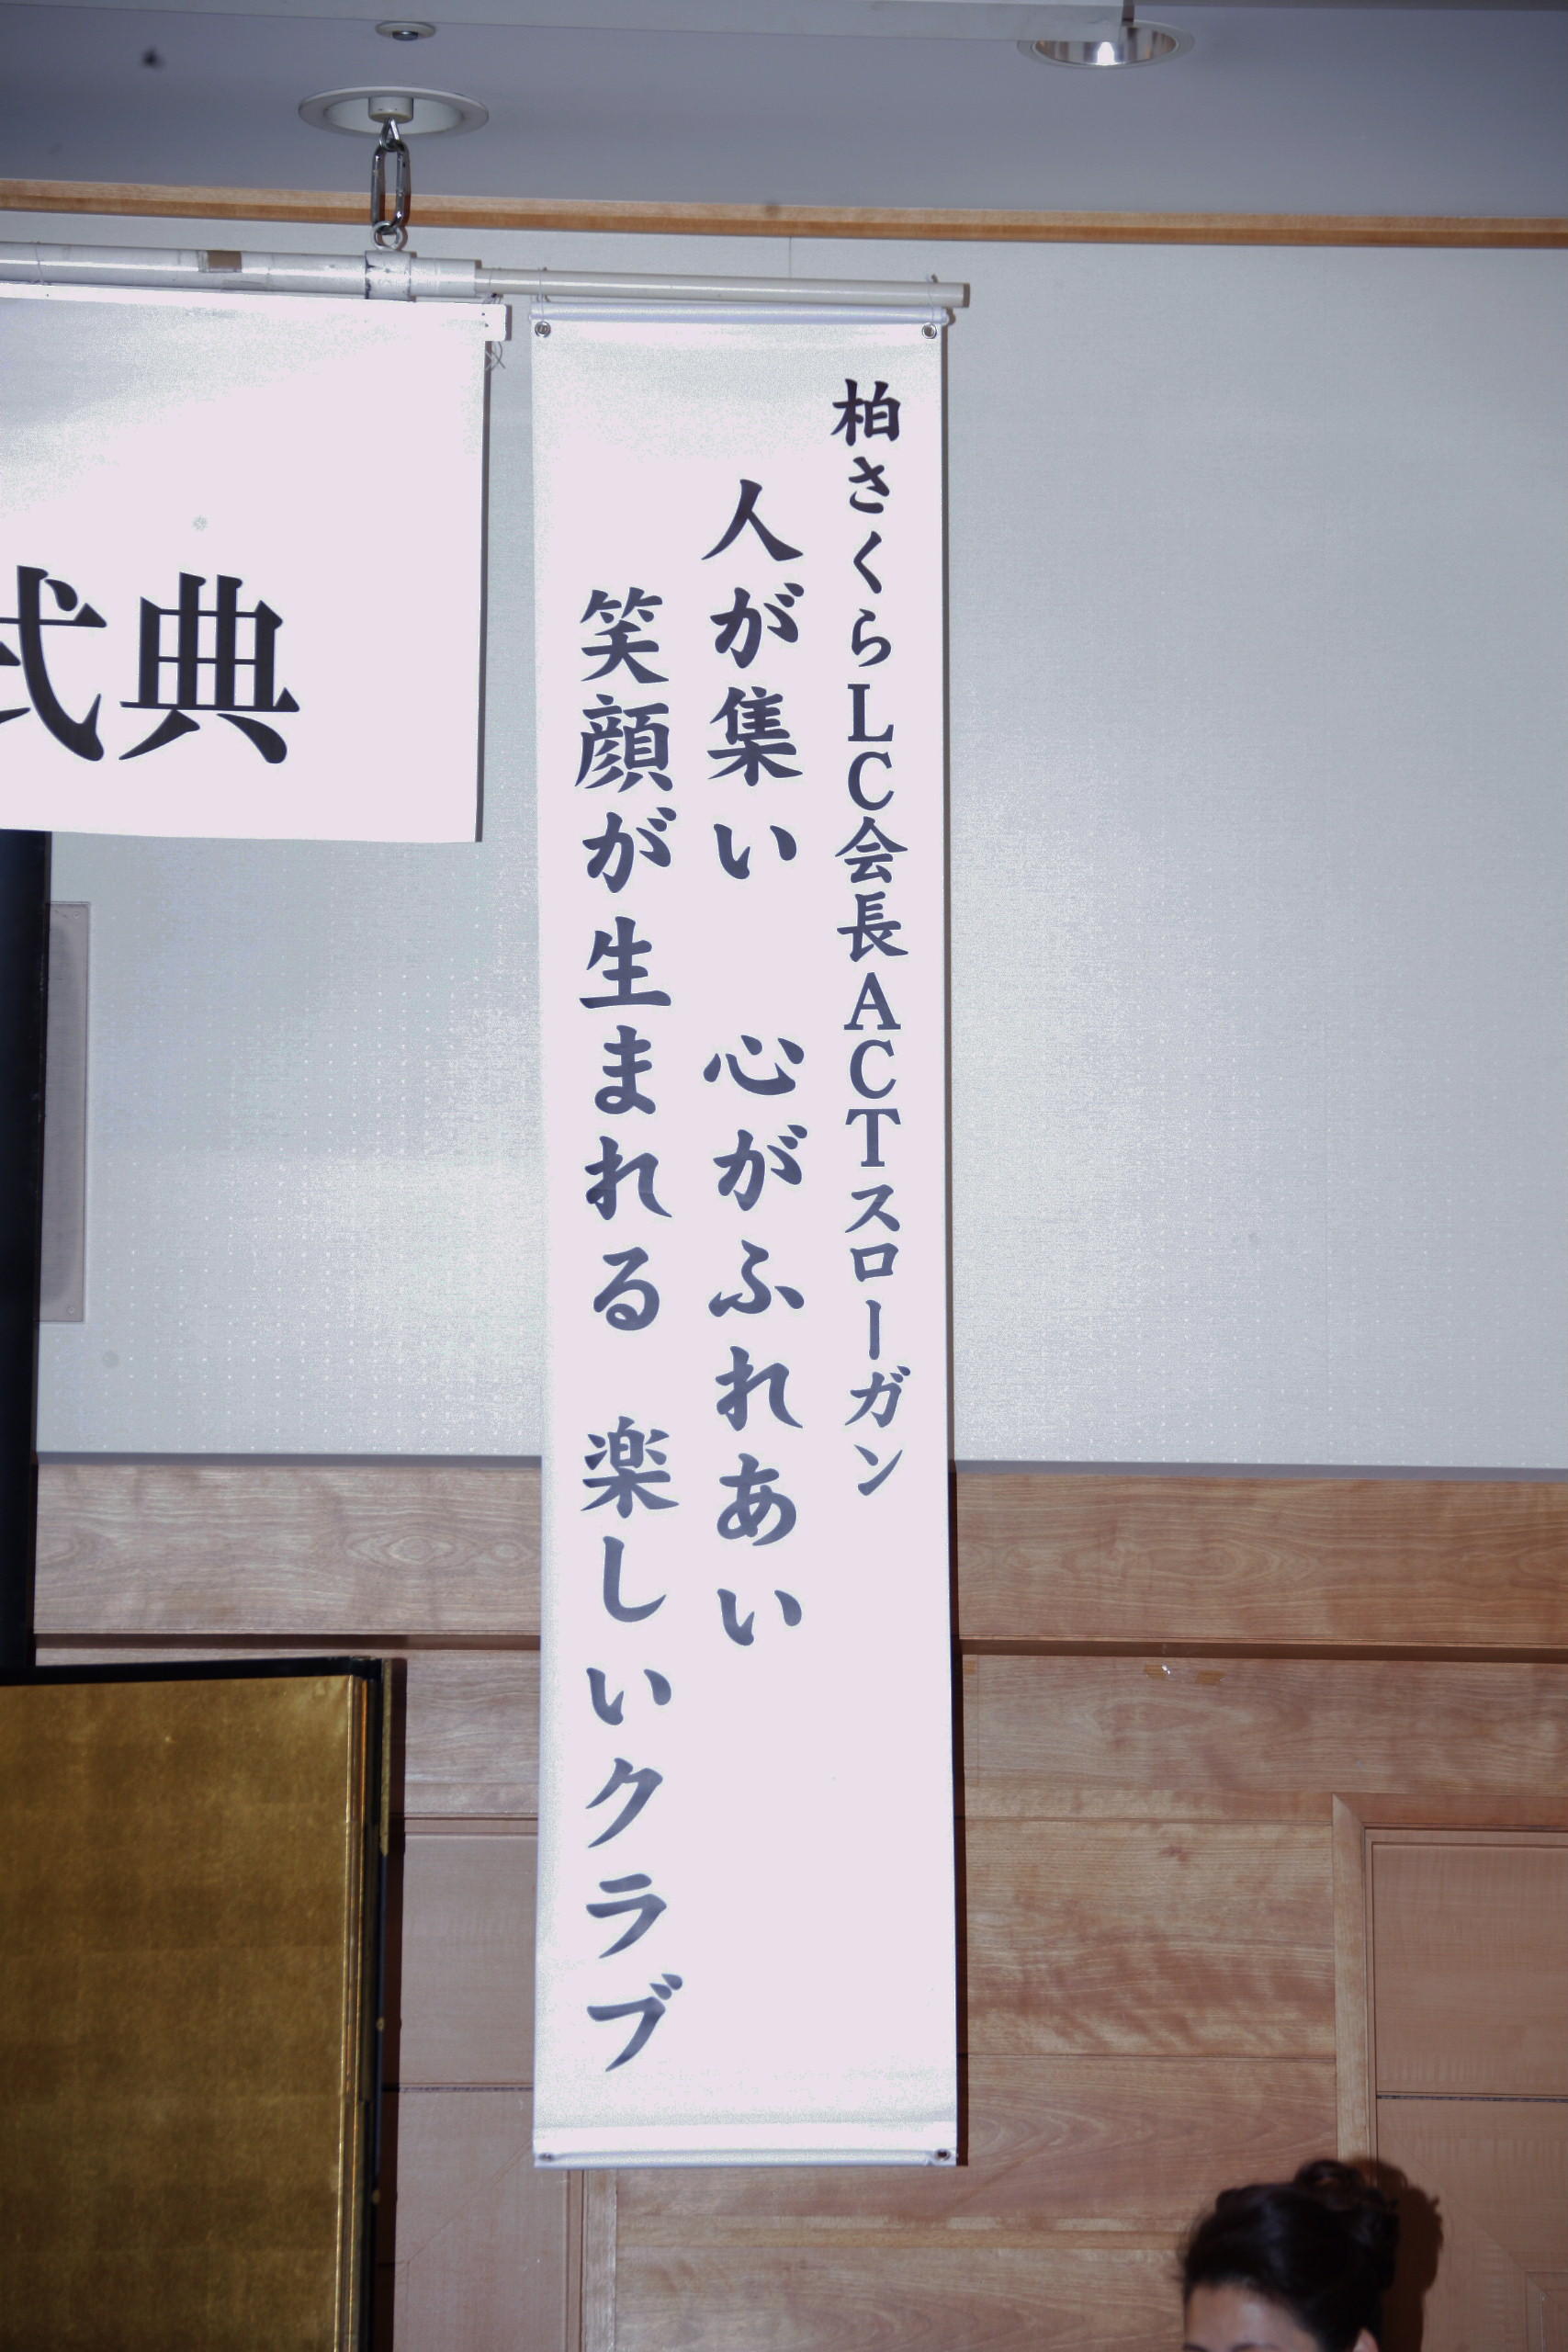 柏さくらLC会長ACTスローガン
人が集い　心がふれあい
笑顔が生まれる　楽しいクラブ
式典